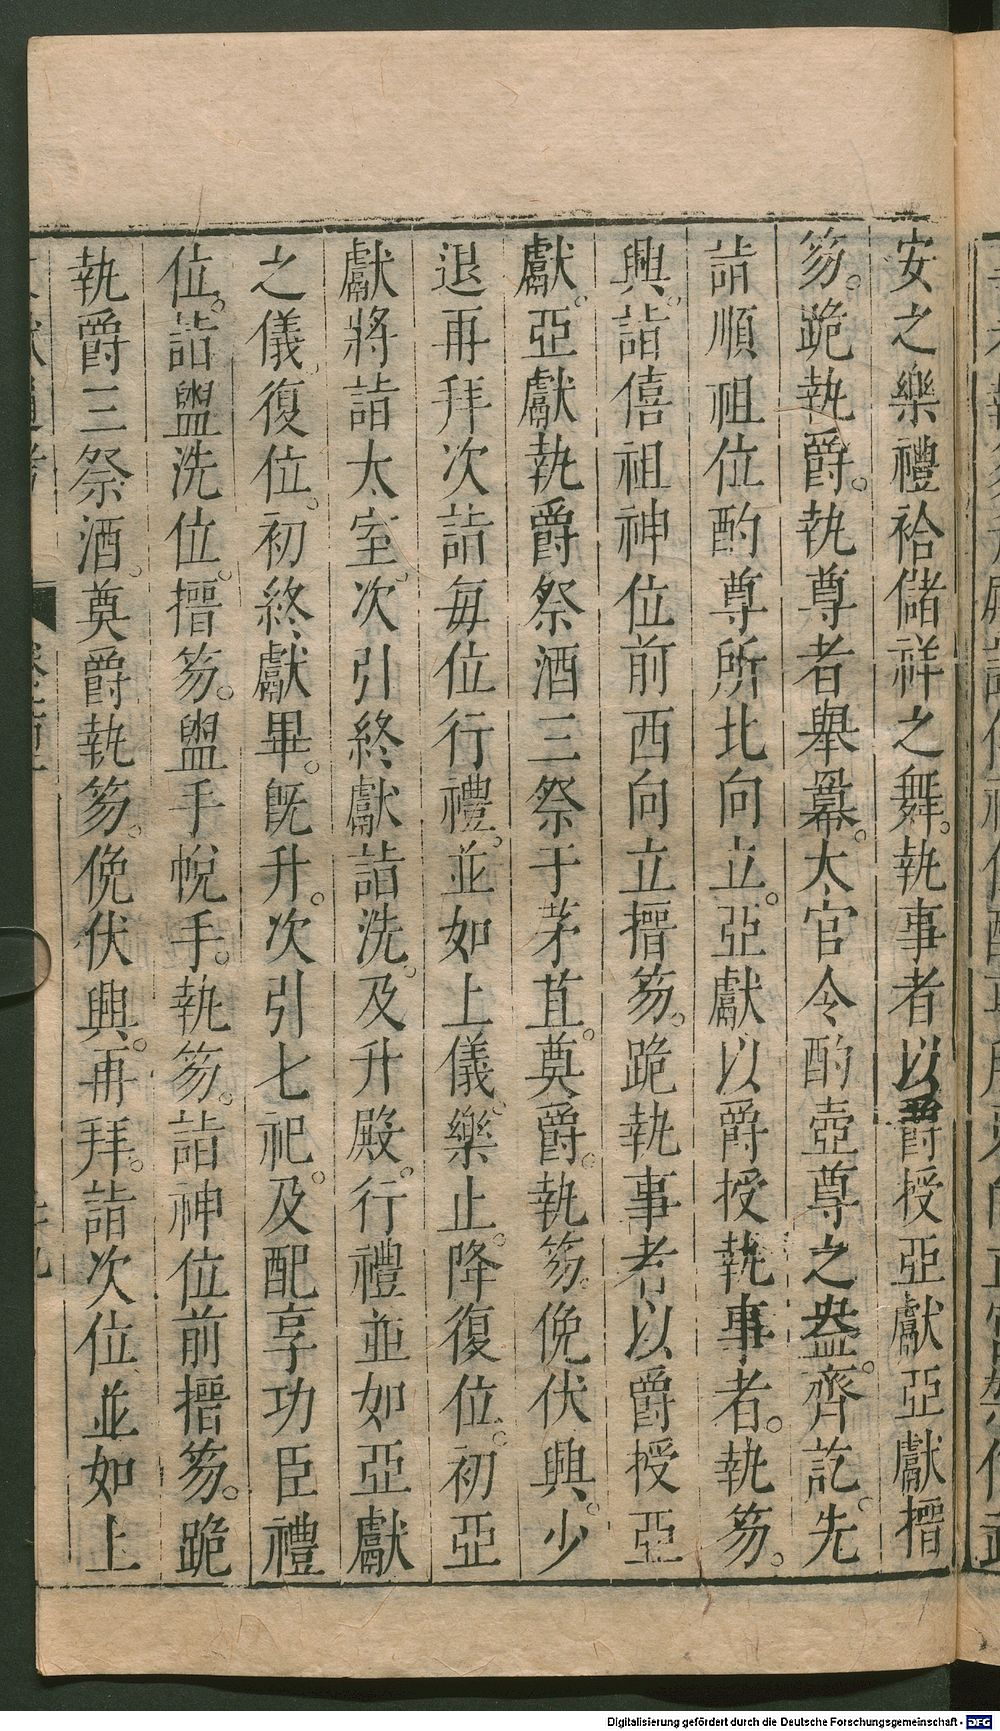 安之樂禮祫儲祥之舞。執事者以爵授亞獻亞獻搢
笏。跪執爵。執尊者舉冪。太官令酌壺尊之盎齊訖。先
詣順祖位酌尊所北向立。亞獻以爵授執事者。執笏。
興。詣僖祖神位前西向立搢笏。跪執事者以爵授亞
獻。亞獻執爵祭酒三祭于茅苴。奠爵。執笏。俛伏興。少
退再拜次詣每位行禮。並如上儀。樂止。降復位。初亞
獻將詣太室。次引終獻詣洗。及升殿。行禮並如亞獻
之儀。復位。初終獻畢。旣升。次引七祀。及配享功臣禮
位。詣盥洗位。搢笏。盥手帨手。執笏。詣神位前搢笏。跪
執爵三祭酒。奠爵執笏。俛伏興。再拜。詣次位並如上
Digitalisierung gefördert durch die Deutsche Forschungsgemeinschaft - DFG